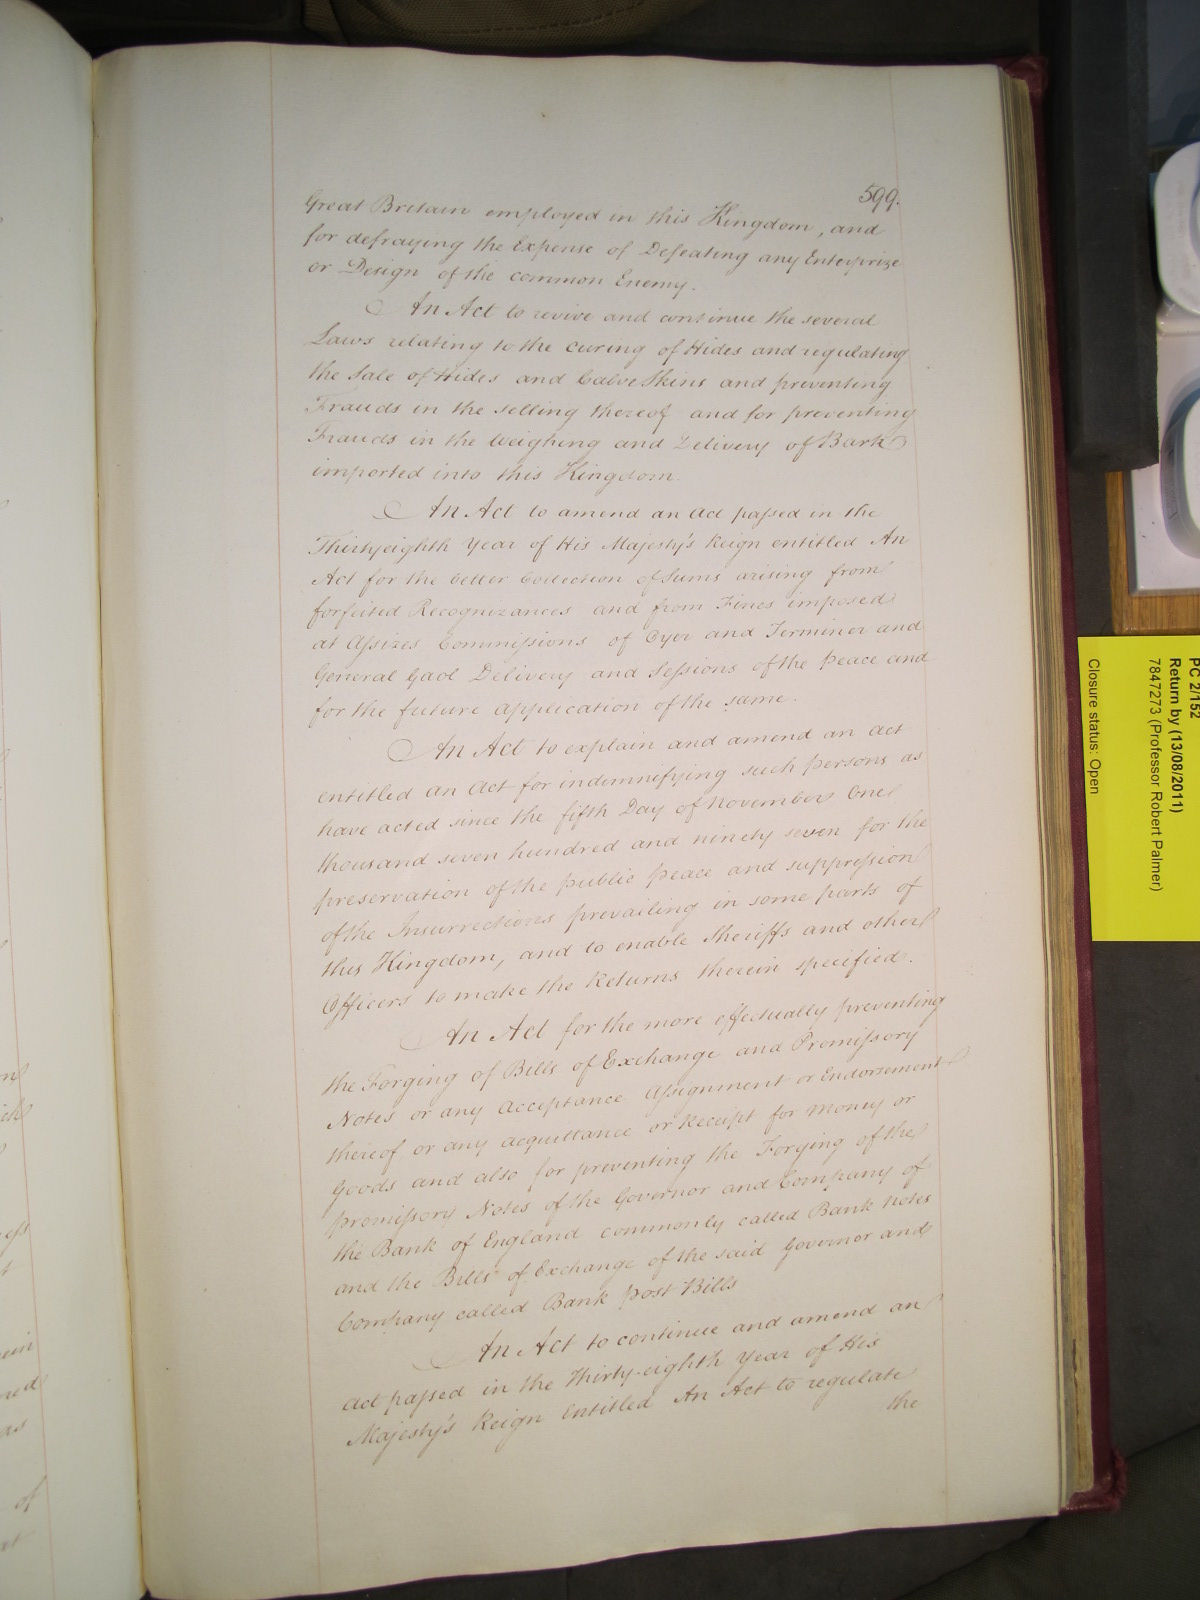 599.
Great Britain employed in this Kingdom, and
for defraying the Expense of Defeating any Enterprize
or Design of the common Enemy.
An Act to revive and continue the several
Laws relating to the curing of Hides and regulating
the Sale of Hides and Calve Skins and preventing
Frauds in the selling thereof and for preventing
Frauds in the Weighing and Delivery of Bark
imported into this Kingdom.
An Act to amend an Act passed in the
Thirtyeighth Year of His Majesty's Reign entitled An
Act for the better Collection of Sums arising from
forfeited Recognizances and from Fines imposed
at Assizes Commissions of Oyer and Terminer and
General Gaol Delivery and Sessions of the Peace and
for the future application of the same.
An Act to explain and amend an Act
entitled an Act for indemnifying such persons as
have acted since the fifth Day of November One
thousand seven hundred and ninety seven for the
preservation of the public peace and suppression
of the Insurrections prevailing in some parts of
this Kingdom, and to enable Sheriffs and other
Officers to make the Returns therein specified.
An Act for the more effectually preventing
the Forging of Bills of Exchange and Promissory
Notes or any Acceptance Assignment or Endorsement
thereof or any acquittance or Receipt for Money or
Goods and also for preventing the Forging of the
promissory Notes of the Governor and Company of
the Bank of England commonly called Bank notes
and the Bills of Exchange of the said Governor and
Company called Bank post Bills
An Act to continue and amend an
Act passed in the Thirty-eighth Year of His
Majesty's Reign Entitled An Act to regulate
the
PC 2/152
Return by (13/08/2011)
7847273 (Professor Robert Palmer)
Closure status: Open